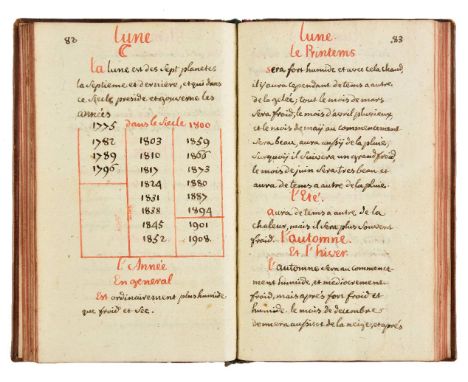 82
Lune
La lune est des sept planetes
la septieme et derniere, et qui dans
ce Siecle preside et gouverne les
années
1775 dans le Siecle 1800
1782 1803 1859
1789 1810 1866
1796 1817 1873
1824 1880
1831 1887
1838 1894
1845 1901
1852 1908.
l'Année
En general
Est ordinairement plus humide
que froid et sec.
83
Lune
Le Printems
sera fort humide et avec cela chaud,
il y aura cependant de tems a autre
de la gelée, tout le mois de mars
sera froid, le mois d'avril pluvieux
et le mois de may au commencement
sera beau, aura aussy de la pluie,
surquoy il suivera un grand froid,
le mois de juin sera tres beau et
aura de tems a autre de la pluie.
l'Eté.
aura de tems a autre de la
chaleur, mais il sera plus souvent
froid. l'automne.
Et l'hiver
l'automne sera au commence-
ment humide, et mediocrement
froid, mais aprés fort froid et
humide. le mois de decembre
donnera aussitot de la neige, et aprés